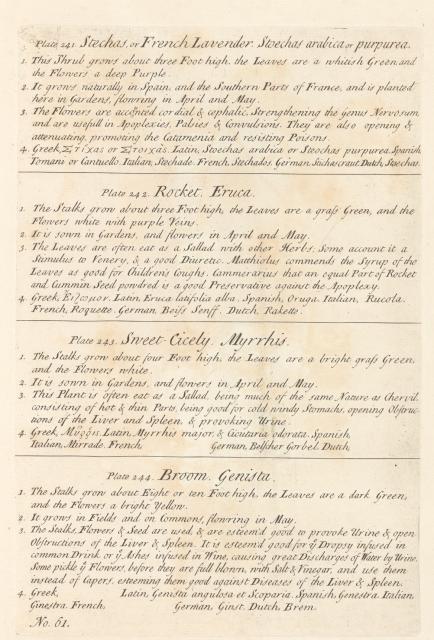 Plate 241. Stechas, or French Lavender. Stœchas arabica or purpurea.
1. This Shrub grows about three Foot high, the Leaves are a whitish Green, and
the Flowers a deep Purple.
2. It grows naturally in Spain, and the Southern Parts of France, and is planted
here in Gardens, flowring in April and May.
3. The Flowers are accounted cordial & cephalic, Strengthening the Genus Nervosum
and are usefull in Apoplexies, Palsies & Convulsions. They are also opening &
attenuating, promoting the Catamenia and resisting Poisons.
4. Greek, Στίχας or Στοιχάς. Latin, Stœchas arabica or Stœchas purpurea. Spanish,
Tomani or Cantueſſo. Italian, Stechade. French, Stechados. German, Stichascraut. Dutch, Stœchas.
Plate 242. Rocket. Eruca.
1. The Stalks grow about three Foot high, the Leaves are a graſs Green, and the
Flowers white with purple Veins.
2. It is sown in Gardens, and flowers in April and May.
3. The Leaves are often eat as a Sallad with other Herbs. Some account it a
Stimulus to Venery, & a good Diuretic. Matthiolus commends the Syrup of the
Leaves as good for Children's Coughs. Cammerarius that an equal Part of Rocket
and Cummin Seed powdred is a good Preservative against the Apoplexy.
4. Greek, Εὔζωμον. Latin, Eruca latifolia alba. Spanish, Oruga. Italian, Rucola.
French, Roquette. German, Beiſs Senff. Dutch, Rakette.
Plate 243. Sweet-Cicely. Myrrhis.
1. The Stalks grow about four Foot high, the Leaves are a bright graſs Green,
and the Flowers white.
2. It is sown in Gardens, and flowers in April and May.
3. This Plant is often eat as a Sallad, being much of the same Nature as Chervil.
consisting of hot & thin Parts, being good for cold windy Stomachs, opening Obstruc-
tions of the Liver and Spleen, & provoking Urine.
4. Greek, Μύῤῥη. Latin, Myrrhis major, & Cicutaria odorata. Spanish,
Italian, Mirrade. French, German, Belſcher Gorbel. Dutch
Plate 244. Broom. Genista.
1. The Stalks grow about Eight or ten Foot high, the Leaves are a dark Green,
and the Flowers a bright Yellow.
2. It grows in Fields and on Commons, flowring in May.
3. The Stalks, Flowers & Seed are used, & are esteem'd good to provoke Urine & open
Obstructions of the Liver & Spleen. It is esteem'd good for ye Dropsy infused in
common Drink or ye Ashes infused in Wine, causing great Discharges of Water by Urine.
Some pickle ye Flowers, before they are full blown, with Salt & Vinegar, and use them
instead of Capers, esteeming them good against Diseases of the Liver & Spleen.
4. Greek, Latin, Genista angulosa et Scoparia. Spanish, Genestra. Italian,
Ginestra. French, German, Ginst. Dutch, Brem.
No. 61.